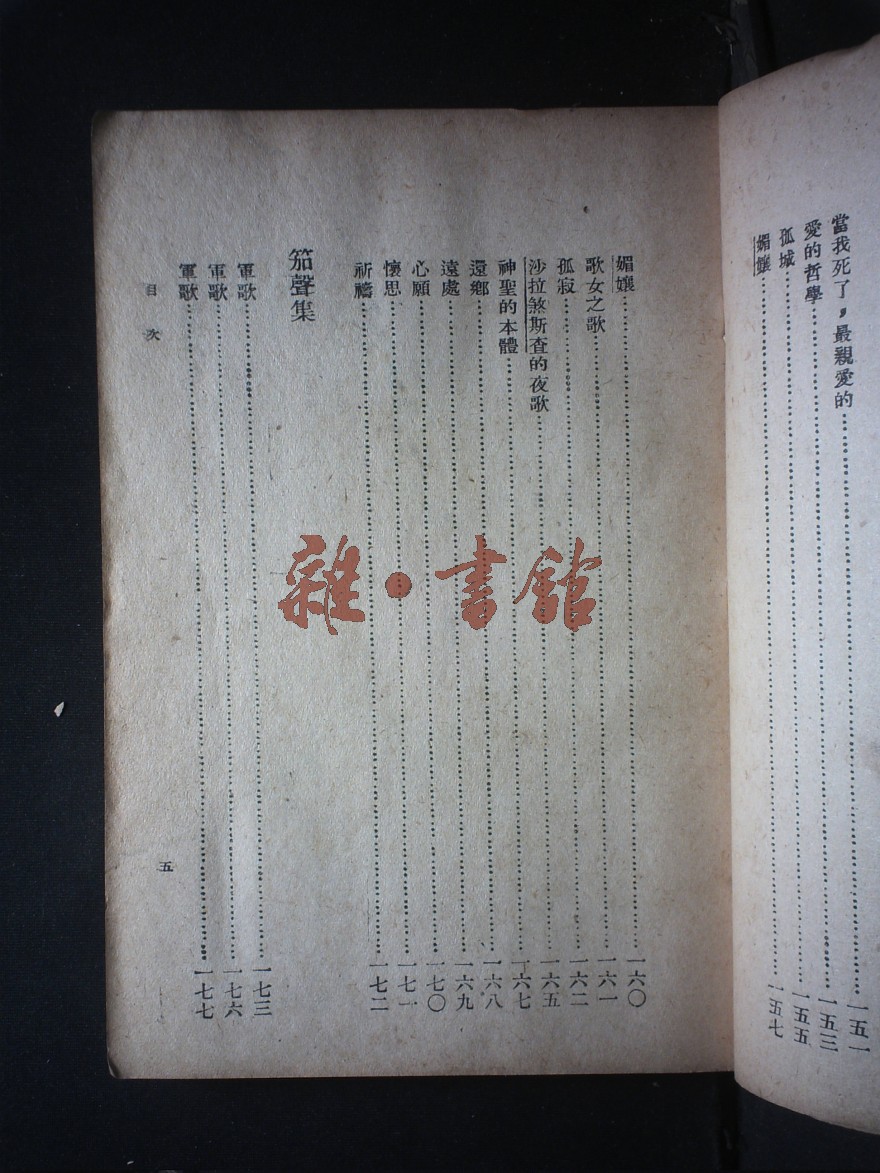 當我死了，最親愛的……一五一
愛的哲學……一五三
孤城……一五五
媚孃……一五七
媚孃……一六〇
歌女之歌……一六一
孤寂……一六二
沙拉煞斯查的夜歌……一六五
神聖的本體……一六七
還鄉……一六八
遠處……一六九
心願……一七〇
懷思……一七一
祈禱……一七二
笳聲集
軍歌……一七三
軍歌……一七六
軍歌……一七七
目次
五
雜·書館